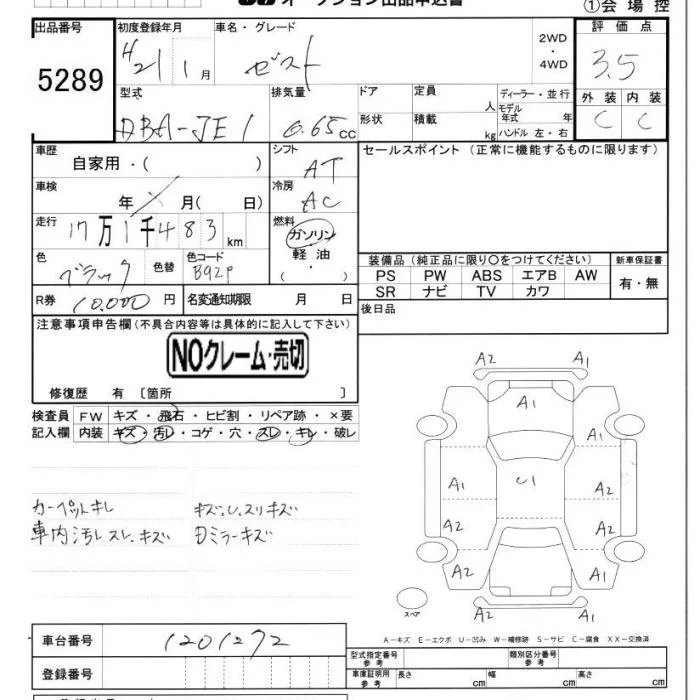 オークション出品申込書
①会場控
出品番号 初度登録年月 車名・グレード 評価点
5289 H21 1月 ゼスト 2WD・4WD 3.5
型式 排気量 ドア 定員 人 ディーラー・並行 外装 内装
DBA-JE1 0.65cc 形状 積載 kg モデル年式 年 ハンドル 左・右 C C
車歴 自家用・( ) シフト AT セールスポイント (正常に機能するものに限ります)
車検 年 月( 日) 冷房 AC
走行 17万1千483km 燃料 ガソリン・軽油・( )
色 ブラック 色替 色コード B92P
装備品(純正品に限り〇をつけてください) 新車保証書
PS PW ABS エアB AW 有・無
SR ナビ TV カワ
R券 10,000円 名変通知期限 月 日 後日品
注意事項申告欄(不具合内容等は具体的に記入して下さい)
NOクレーム・売切
修復歴 有 〔箇所 〕
検査員 FW キズ・飛石・ヒビ割・リペア跡・×要
記入欄 内装 キズ・汚レ・コゲ・穴・スレ・キレ・破レ
カーペットキレ キズ、U、スリキズ
車内汚レ スレ、キズ Dミラーキズ
A2 A1
A1
A1
A1 U1 A2
A2 A2
A2 A1
スペア
A2 A1
A−キズ E−エクボ U−凹み W−補修跡 S−サビ C−腐食 XX−交換済
車台番号 1201272
型式指定番号 参考 類別区分番号 参考
登録番号 車庫証明用 参考 長さ cm 幅 cm 高さ cm